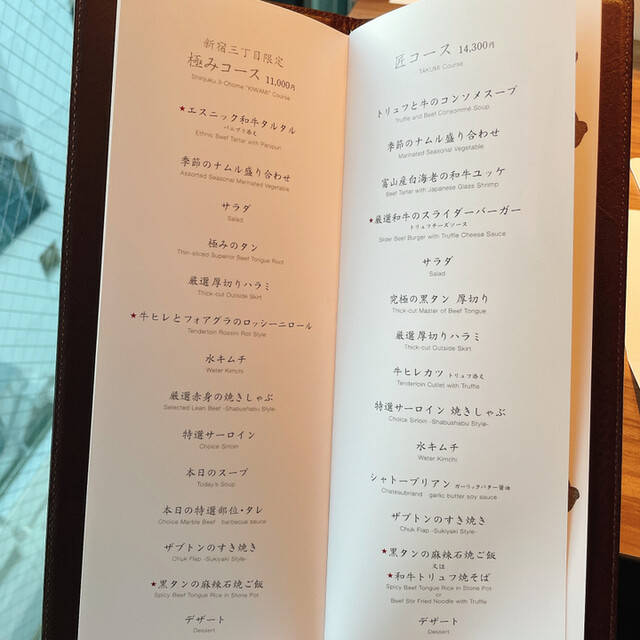 新宿三丁目限定
極みコース 11,000円
Shinjuku 3-Chome "KIWAMI" Course
★エスニック和牛タルタル
パニプリ添え
Ethnic Beef Tartar with Panipuri
季節のナムル盛り合わせ
Assorted Seasonal Marinated Vegetable
サラダ
Salad
極みのタン
Thin-sliced Superior Beef Tongue Root
厳選厚切りハラミ
Thick-cut Outside Skirt
★牛ヒレとフォアグラのロッシーニロール
Tenderloin Rossini Roll Style
水キムチ
Water Kimchi
厳選赤身の焼きしゃぶ
Selected Lean Beef -Shabushabu Style-
特選サーロイン
Choice Sirloin
本日のスープ
Today's Soup
本日の特選部位・タレ
Choice Marble Beef barbecue sauce
ザブトンのすき焼き
Chuk Flap -Sukiyaki Style-
★黒タンの麻辣石焼ご飯
Spicy Beef Tongue Rice in Stone Pot
デザート
Dessert
匠コース 14,300円
TAKUMI Course
トリュフと牛のコンソメスープ
Truffle and Beef Consommé Soup
季節のナムル盛り合わせ
Marinated Seasonal Vegetable
富山産白海老の和牛ユッケ
Beef Tartar with Japanese Glass Shrimp
★厳選和牛のスライダーバーガー
トリュフチーズソース
Slider Beef Burger with Truffle Cheese Sauce
サラダ
Salad
究極の黒タン 厚切り
Thick-cut Master of Beef Tongue
厳選厚切りハラミ
Thick-cut Outside Skirt
牛ヒレカツ トリュフ添え
Tenderloin Cutlet with Truffle
特選サーロイン 焼きしゃぶ
Choice Sirloin -Shabushabu Style-
水キムチ
Water Kimchi
シャトーブリアン ガーリックバター醤油
Chateaubriand garlic butter soy sauce
ザブトンのすき焼き
Chuk Flap -Sukiyaki Style-
★黒タンの麻辣石焼ご飯
又は
★和牛トリュフ焼そば
Spicy Beef Tongue Rice in Stone Pot
or
Beef Stir Fried Noodle with Truffle
デザート
Dessert